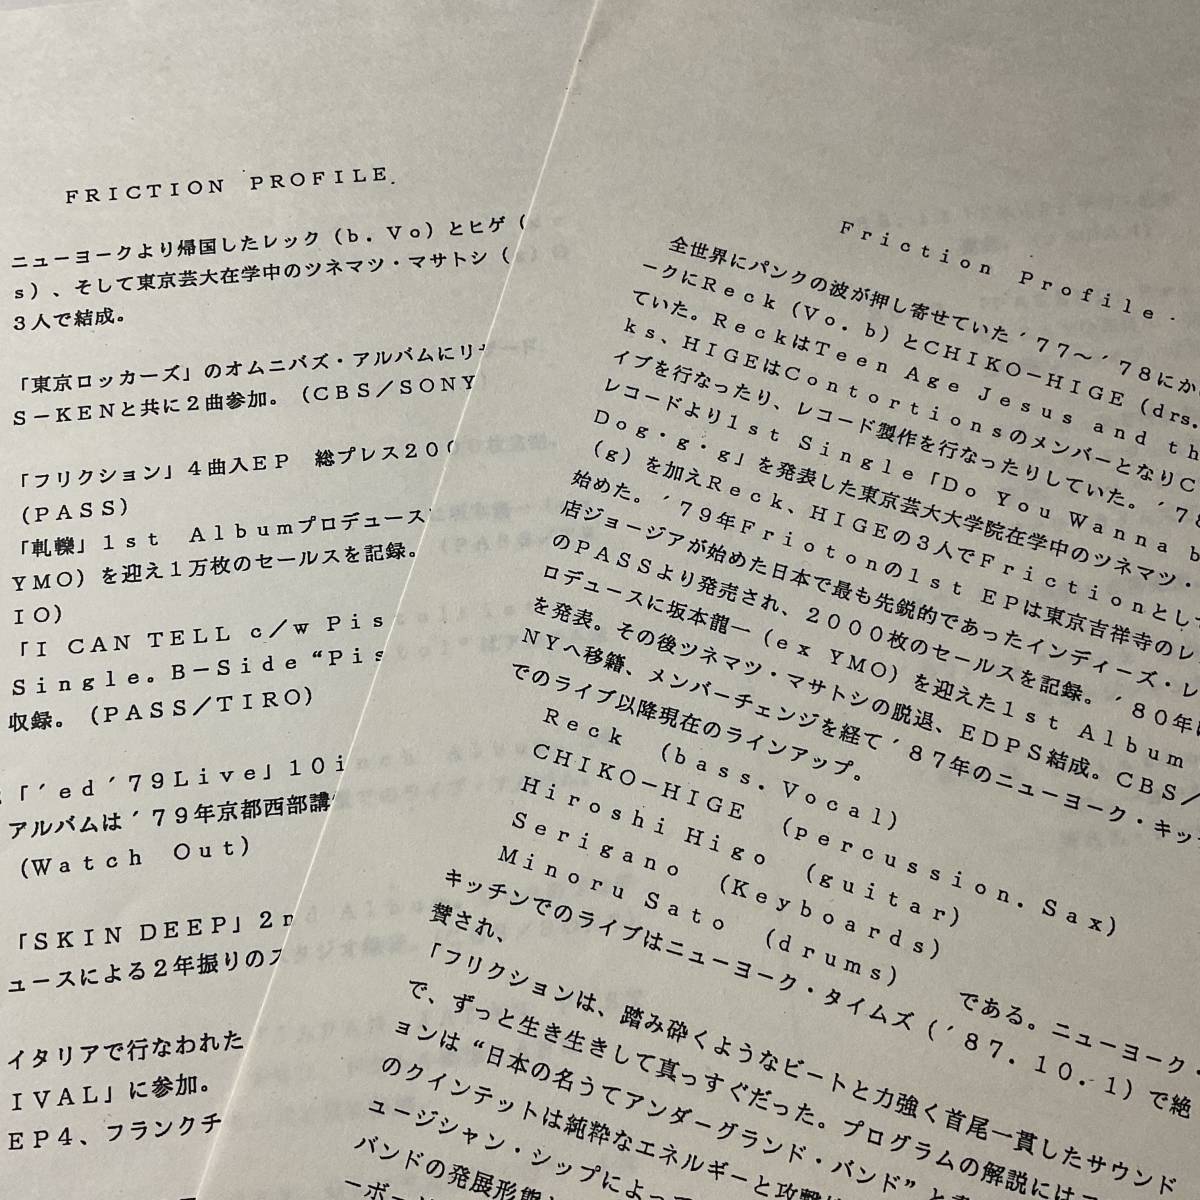 ＦＲＩＣＴＩＯＮ　ＰＲＯＦＩＬＥ．
ニューヨークより帰国したレック（ｂ．Ｖｏ）とヒゲ（
ｓ）、そして東京芸大在学中のツネマツ・マサトシ（
３人で結成。
「東京ロッカーズ」のオムニバズ・アルバムにリ
Ｓ－ＫＥＮと共に２曲参加。（ＣＢＳ／ＳＯＮＹ
「フリクション」４曲入ＥＰ　総プレス２００
（ＰＡＳＳ）
「軋轢」１ｓｔ　Ａｌｂｕｍプロデュース
ＹＭＯ）を迎え１万枚のセールスを記録。
ＩＯ）
「Ｉ　ＣＡＮ　ＴＥＬＬ　ｃ／ｗ　Ｐｉｓ
Ｓｉｎｇｌｅ。Ｂ－Ｓｉｄｅ“Ｐｉｓ
収録。（ＰＡＳＳ／ＴＩＲＯ）
「´ｅｄ´７９Ｌｉｖｅ」１０ｉ
アルバムは´７９年京都西部講
（Ｗａｔｃｈ　Ｏｕｔ）
「ＳＫＩＮ　ＤＥＥＰ」２ｎ
ュースによる２年振りのス
イタリアで行なわれた
ＩＶＡＬ」に参加。
ＥＰ４、フランクチ
Ｆｒｉｃｔｉｏｎ　Ｐｒｏｆｉｌｅ．
全世界にパンクの波が押し寄せていた´７７～´７８にか
ークにＲｅｃｋ（Ｖｏ．ｂ）とＣＨＩＫＯ－ＨＩＧＥ（ｄｒｓ．
ていた。ＲｅｃｋはＴｅｅｎ　Ａｇｅ　Ｊｅｓｕｓ　ａｎｄ　ｔｈ
ｋｓ、ＨＩＧＥはＣｏｎｔｏｒｔｉｏｎｓのメンバーとなりＣ
イブを行なったり、レコード製作を行なったりしていた。´７８
レコードより１ｓｔ　Ｓｉｎｇｌｅ「Ｄｏ　Ｙｏｕ　Ｗａｎｎａ　ｂ
Ｄｏｇ・ｇ・ｇ」を発表した東京芸大大学院在学中のツネマツ・
（ｇ）を加えＲｅｃｋ、ＨＩＧＥの３人でＦｒｉｃｔｉｏｎとして
始めた。´７９年Ｆｒｉｏｔｏｎの１ｓｔ　ＥＰは東京吉祥寺のレ
店ジョージアが始めた日本で最も先鋭的であったインディーズ・レ
のＰＡＳＳより発売され、２０００枚のセールスを記録。´８０年
ロデュースに坂本龍一（ｅｘ　ＹＭＯ）を迎えた１ｓｔ　Ａｌｂｕｍ
を発表。その後ツネマツ・マサトシの脱退、ＥＤＰＳ結成。ＣＢＳ／
ＮＹへ移籍、メンバーチェンジを経て´８７年のニューヨーク・キッ
でのライブ以降現在のラインアップ。
Ｒｅｃｋ　（ｂａｓｓ．Ｖｏｃａｌ）
ＣＨＩＫＯ－ＨＩＧＥ　（ｐｅｒｃｕｓｓｉｏｎ．Ｓａｘ）
Ｈｉｒｏｓｈｉ　Ｈｉｇｏ　（ｇｕｉｔａｒ）
Ｓｅｒｉｇａｎｏ　（Ｋｅｙｂｏａｒｄｓ）
Ｍｉｎｏｒｕ　Ｓａｔｏ　（ｄｒｕｍｓ）　　である。ニューヨーク・
キッチンでのライブはニューヨーク・タイムズ（´８７．１０．１）で絶
賛され、
「フリクションは、踏み砕くようなビートと力強く首尾一貫したサウンド
で、ずっと生き生きして真っすぐだった。プログラムの解説には
ョンは“日本の名うてアンダーグランド・バンド”と
のクインテットは純粋なエネルギーと攻撃
ュージシャン・シップによって
バンドの発展形態